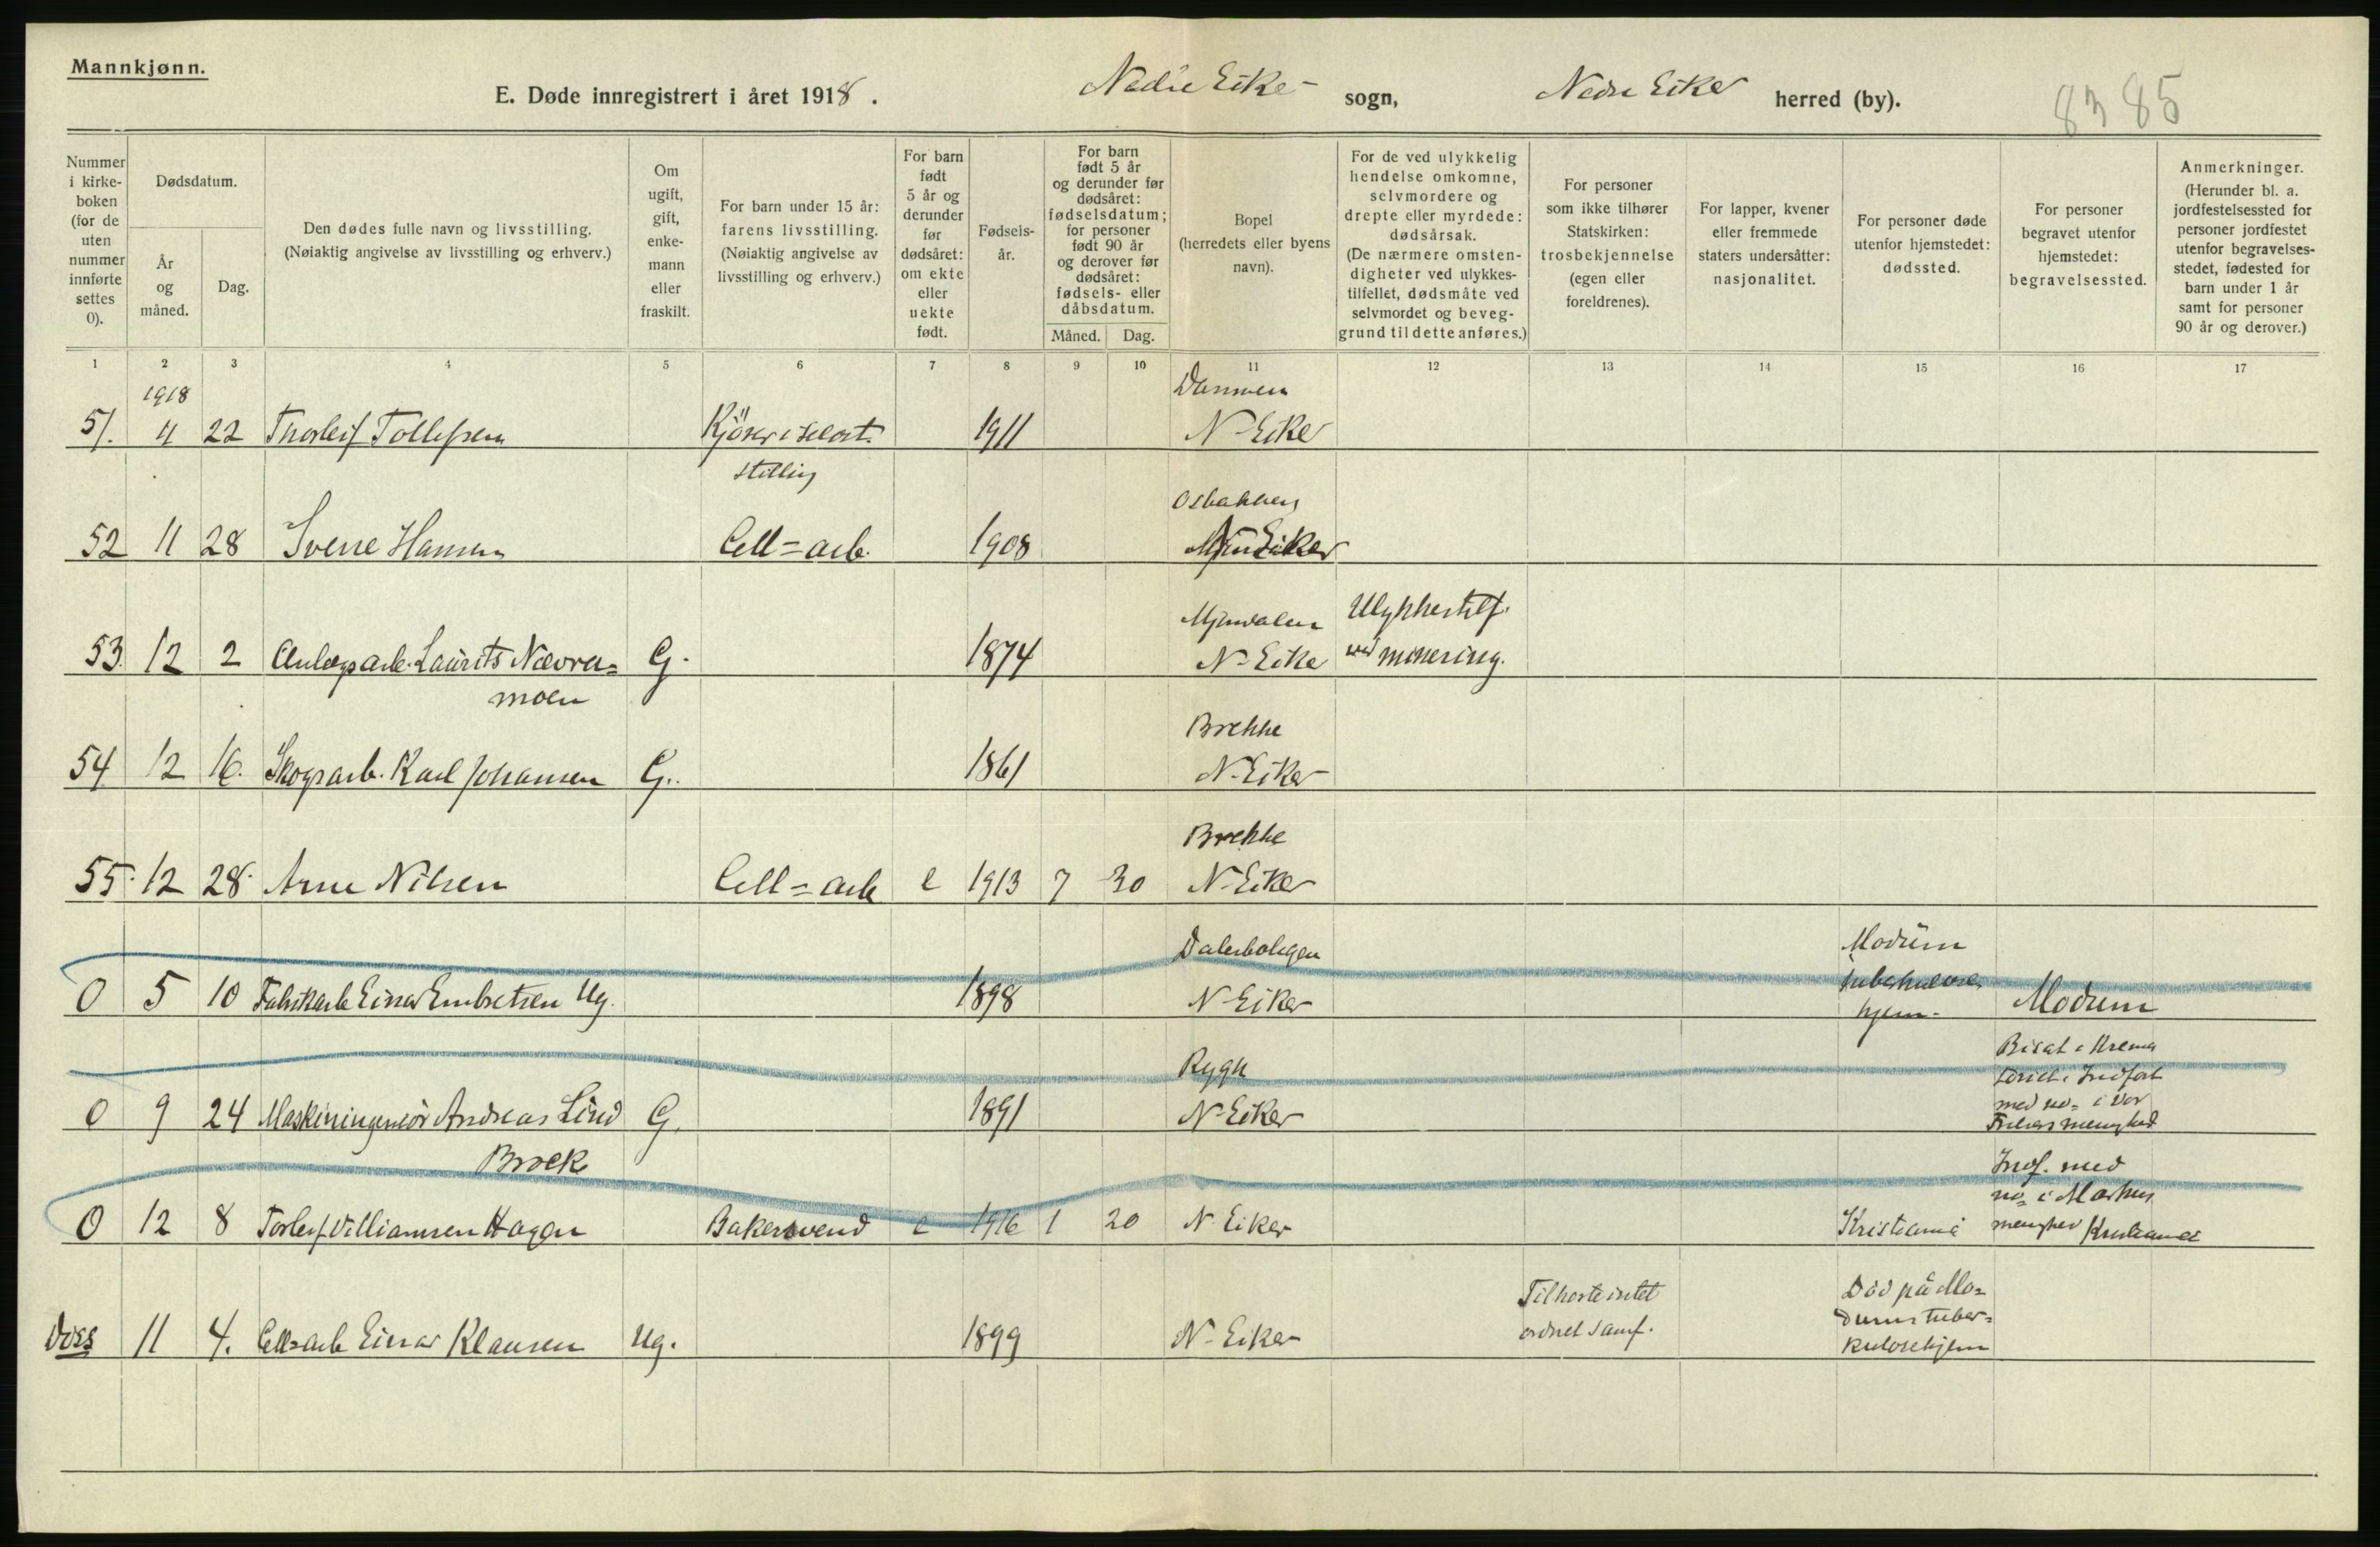 Mannkjønn.
E. Døde innregistrert i året 1918. Nedre Eiker sogn, Nedre Eiker herred (by). 8385
Nummer i kirke-boken (for de uten nummer innførte settes 0).
Dødsdatum.
År og måned.
Dag.
Den dødes fulle navn og livsstilling.
(Nøiaktig angivelse av livsstilling og erhverv.)
Om ugift, gift, enke-mann eller fraskilt.
For barn under 15 år: farens livsstilling.
(Nøiaktig angivelse av livsstilling og erhverv.)
For barn født 5 år og derunder før dødsåret: om ekte eller uekte født.
Fødsels-år.
For barn født 5 år og derunder før dødsåret: fødselsdatum; for personer født 90 år og derover før dødsåret: fødsels- eller dåbsdatum.
Måned. Dag.
Bopel (herredets eller byens navn).
For de ved ulykkelig hendelse omkomne, selvmordere og drepte eller myrdede: dødsårsak.
(De nærmere omsten-digheter ved ulykkes-tilfellet, dødsmåte ved selvmordet og beveg-grund til dette anføres.)
For personer som ikke tilhører Statskirken: trosbekjennelse (egen eller foreldrenes).
For lapper, kvener eller fremmede staters undersåtter: nasjonalitet.
For personer døde utenfor hjemstedet: dødssted.
For personer begravet utenfor hjemstedet: begravelsessted.
Anmerkninger.
(Herunder bl. a. jordfestelsessted for personer jordfestet utenfor begravelses-stedet, fødested for barn under 1 år samt for personer 90 år og derover.)
1 2 3 4 5 6 7 8 9 10 11 12 13 14 15 16 17
1918
51. 4 22 Thorleif Tollefsen Kjører i selvst. 1911 N-Eiker
stilling
52 11 28 Sverre Hansen Cell=arb. 1908 Eiker
Mjøndalen Ulykkestilf.
53. 12 2 Anlægsarb. Laurits Nævra= G. 1874 N-Eiker ved minering.
moen
Brekke
54 12 16. Skogsarb. Karl Johansen G. 1861 N-Eiker
Brekke
55. 12 28. Arne Nilsen Cell=arb e 1913 7 30 N-Eiker
Modum
0 5 10 Fabrikarb Einar Embretsen Ug. 1898 N-Eiker tuberkulose hjem. Modum
0 9 24 Maskiningeniør Andreas Lind G. 1891 N-Eiker
Brock
Indf. med
0 12 8 Torleif Villiamsen Hagen Bakersvend e 1916 1 20 N-Eiker Kristiania no= i Markus menighed Kristiania
Tilhørte intet ordnet samf.
Død på Mo=
dums tuber=
kulosehjem
Diss 11 4. Cell=arb Einar Klausen Ug. 1899 N-Eiker